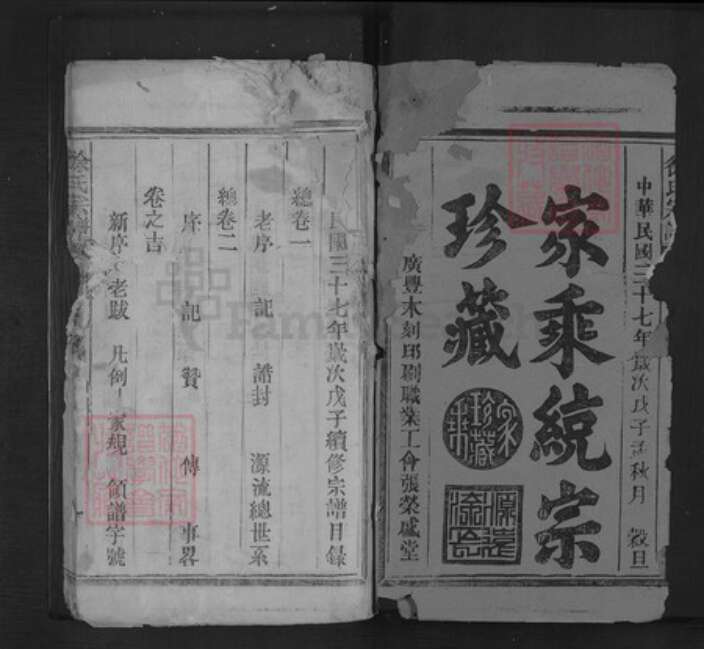 中華民國三十七年歲次戊子孟秋月 穀旦
家乘統宗
珍藏
廣豐木刻印刷職業工會張榮盛堂
民國三十七年歲次戊子續修宗譜目錄
總卷一
老序 記 誥封 源流總世系
總卷二
序 記 贊 傳 事畧
卷之吉
新序 老跋 凡例 家規 領譜字號